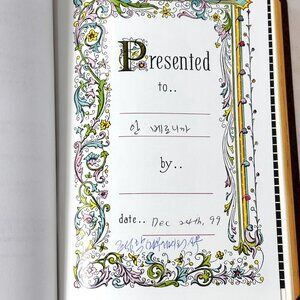 Presented
to..
안 베로니카
by..
date.. Dec 24th, 99